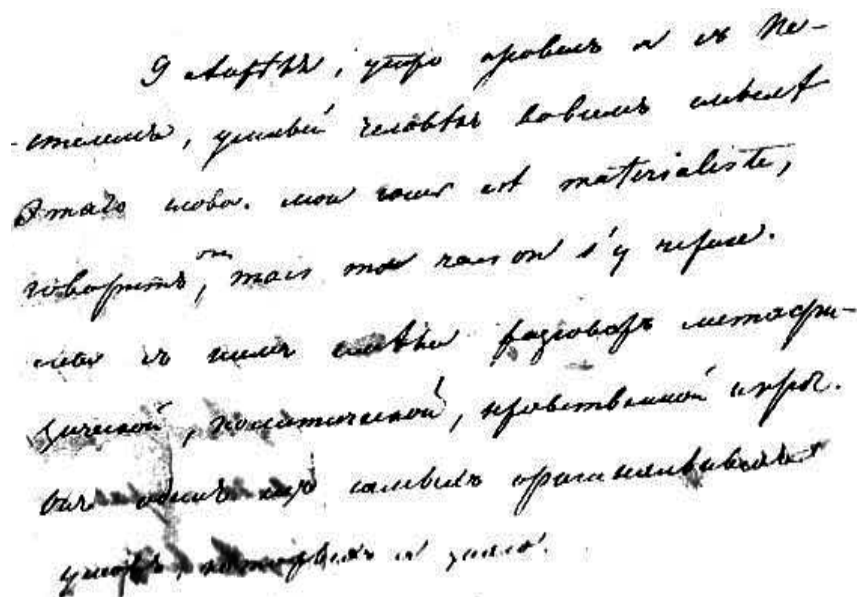 9 Апрѣля, утро провелъ я съ Пе-
-стелемъ, умный человѣкъ во всемъ смыслѣ
этаго слова. Mon coeur est materialiste,
говоритъ онъ, mais ma raison s'y refuse.
мы съ нимъ имѣли разговоръ метафи-
зической, политической, нравственной и проч.
Онъ одинъ изъ самыхъ оригинальныхъ
умовъ, которыхъ я знаю.